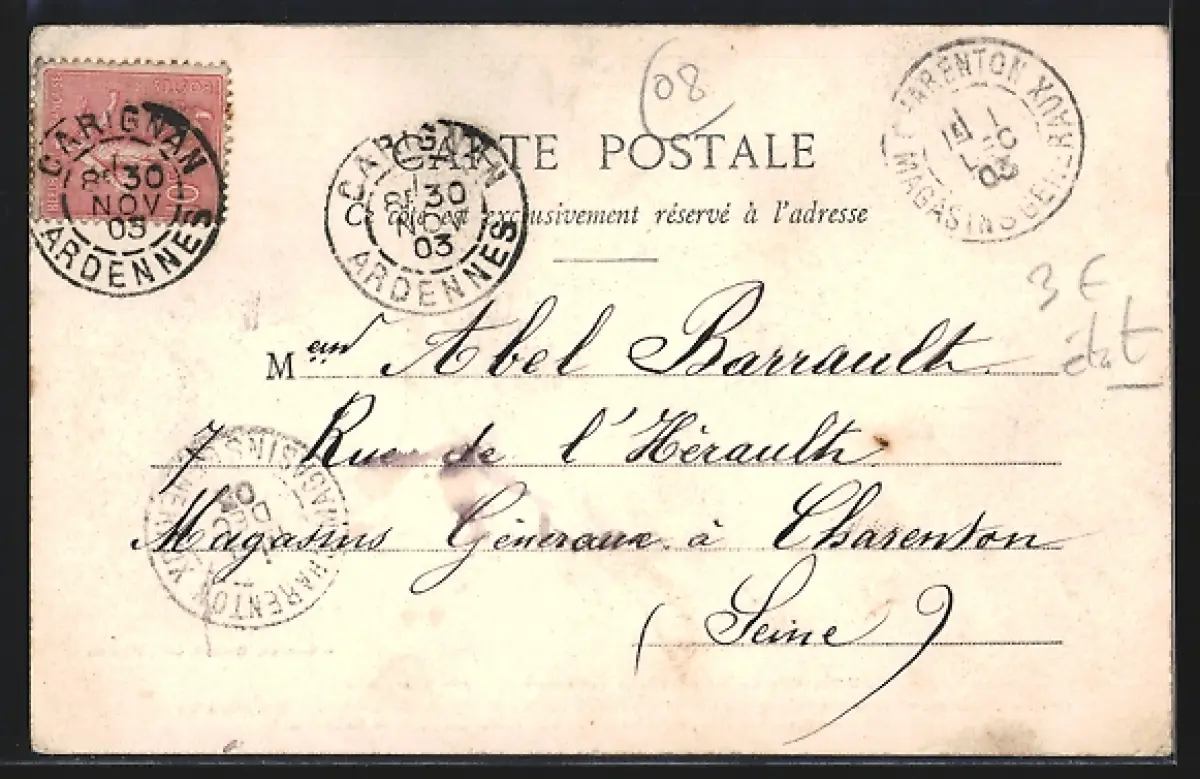 08
CARTE POSTALE
Ce côté est exclusivement réservé à l'adresse
CARIGNAN
30
NOV
03
ARDENNES
CARIGNAN
30
NOV
03
ARDENNES
CHARENTON
03
MAGASINS GENERAUX
3 €
état
Meur Abel Barrault
7 Rue de l'Hérault
Magasins Généraux à Charenton
(Seine)
CHARENTON
DEC
03
MAGASINS GENERAUX